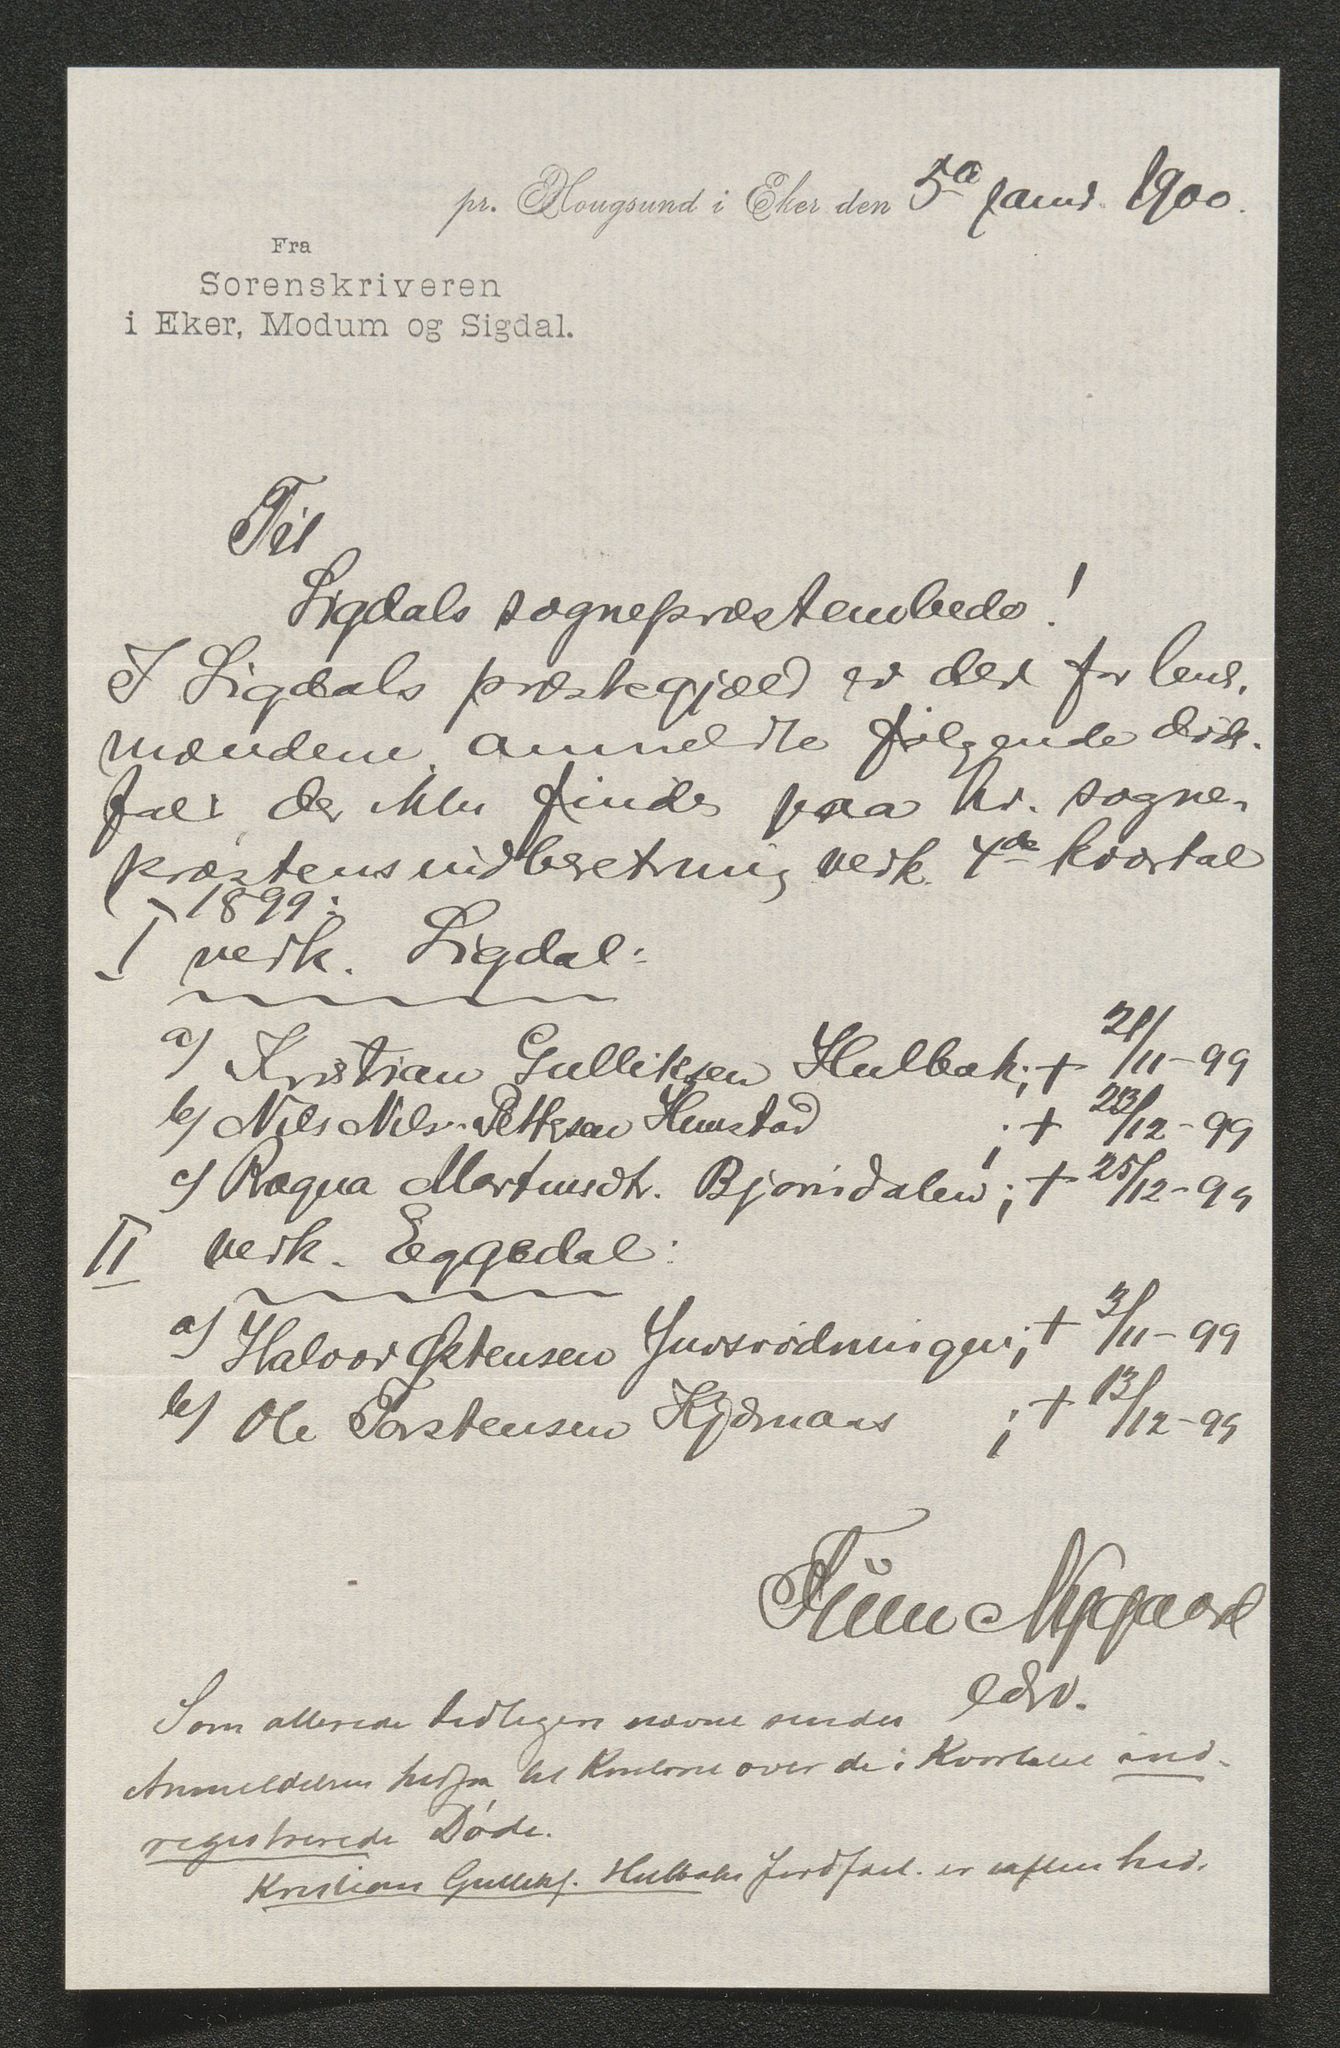 pr. Hougsund i Eker den 5te januar 1900.
Fra
Sorenskriveren
i Eker, Modum og Sigdal.
Til
Sigdals sogneprestembede!
I Sigdals prestegjæld er der for lens-
mændene anmeldte følgende døds-
fald der ikke findes paa hr. sogne-
prestens indberetning vedk. 4de kvartal
1899:
I vedk. Sigdal:
a) Kristian Gulliksen Hulbak; + 21/11-99
b) Nils Nils. Pettersen Hunstad ; + 23/12-99
c) Ragna Martinsdtr. Bjørnsdalen; + 25/12-99
II vedk. Eggedal:
a) Halvor Østensen ; + 3/11-99
b) Ole Torstensen ; + 13/12-99
Nygaard
edsv.
Som allerede tidligere nævnt sendes
Anmeldelsen herfra til Kontoret over de i Kvartalet ind-
registrerede Døde.
Kristian Gulliks. Hulbaks er